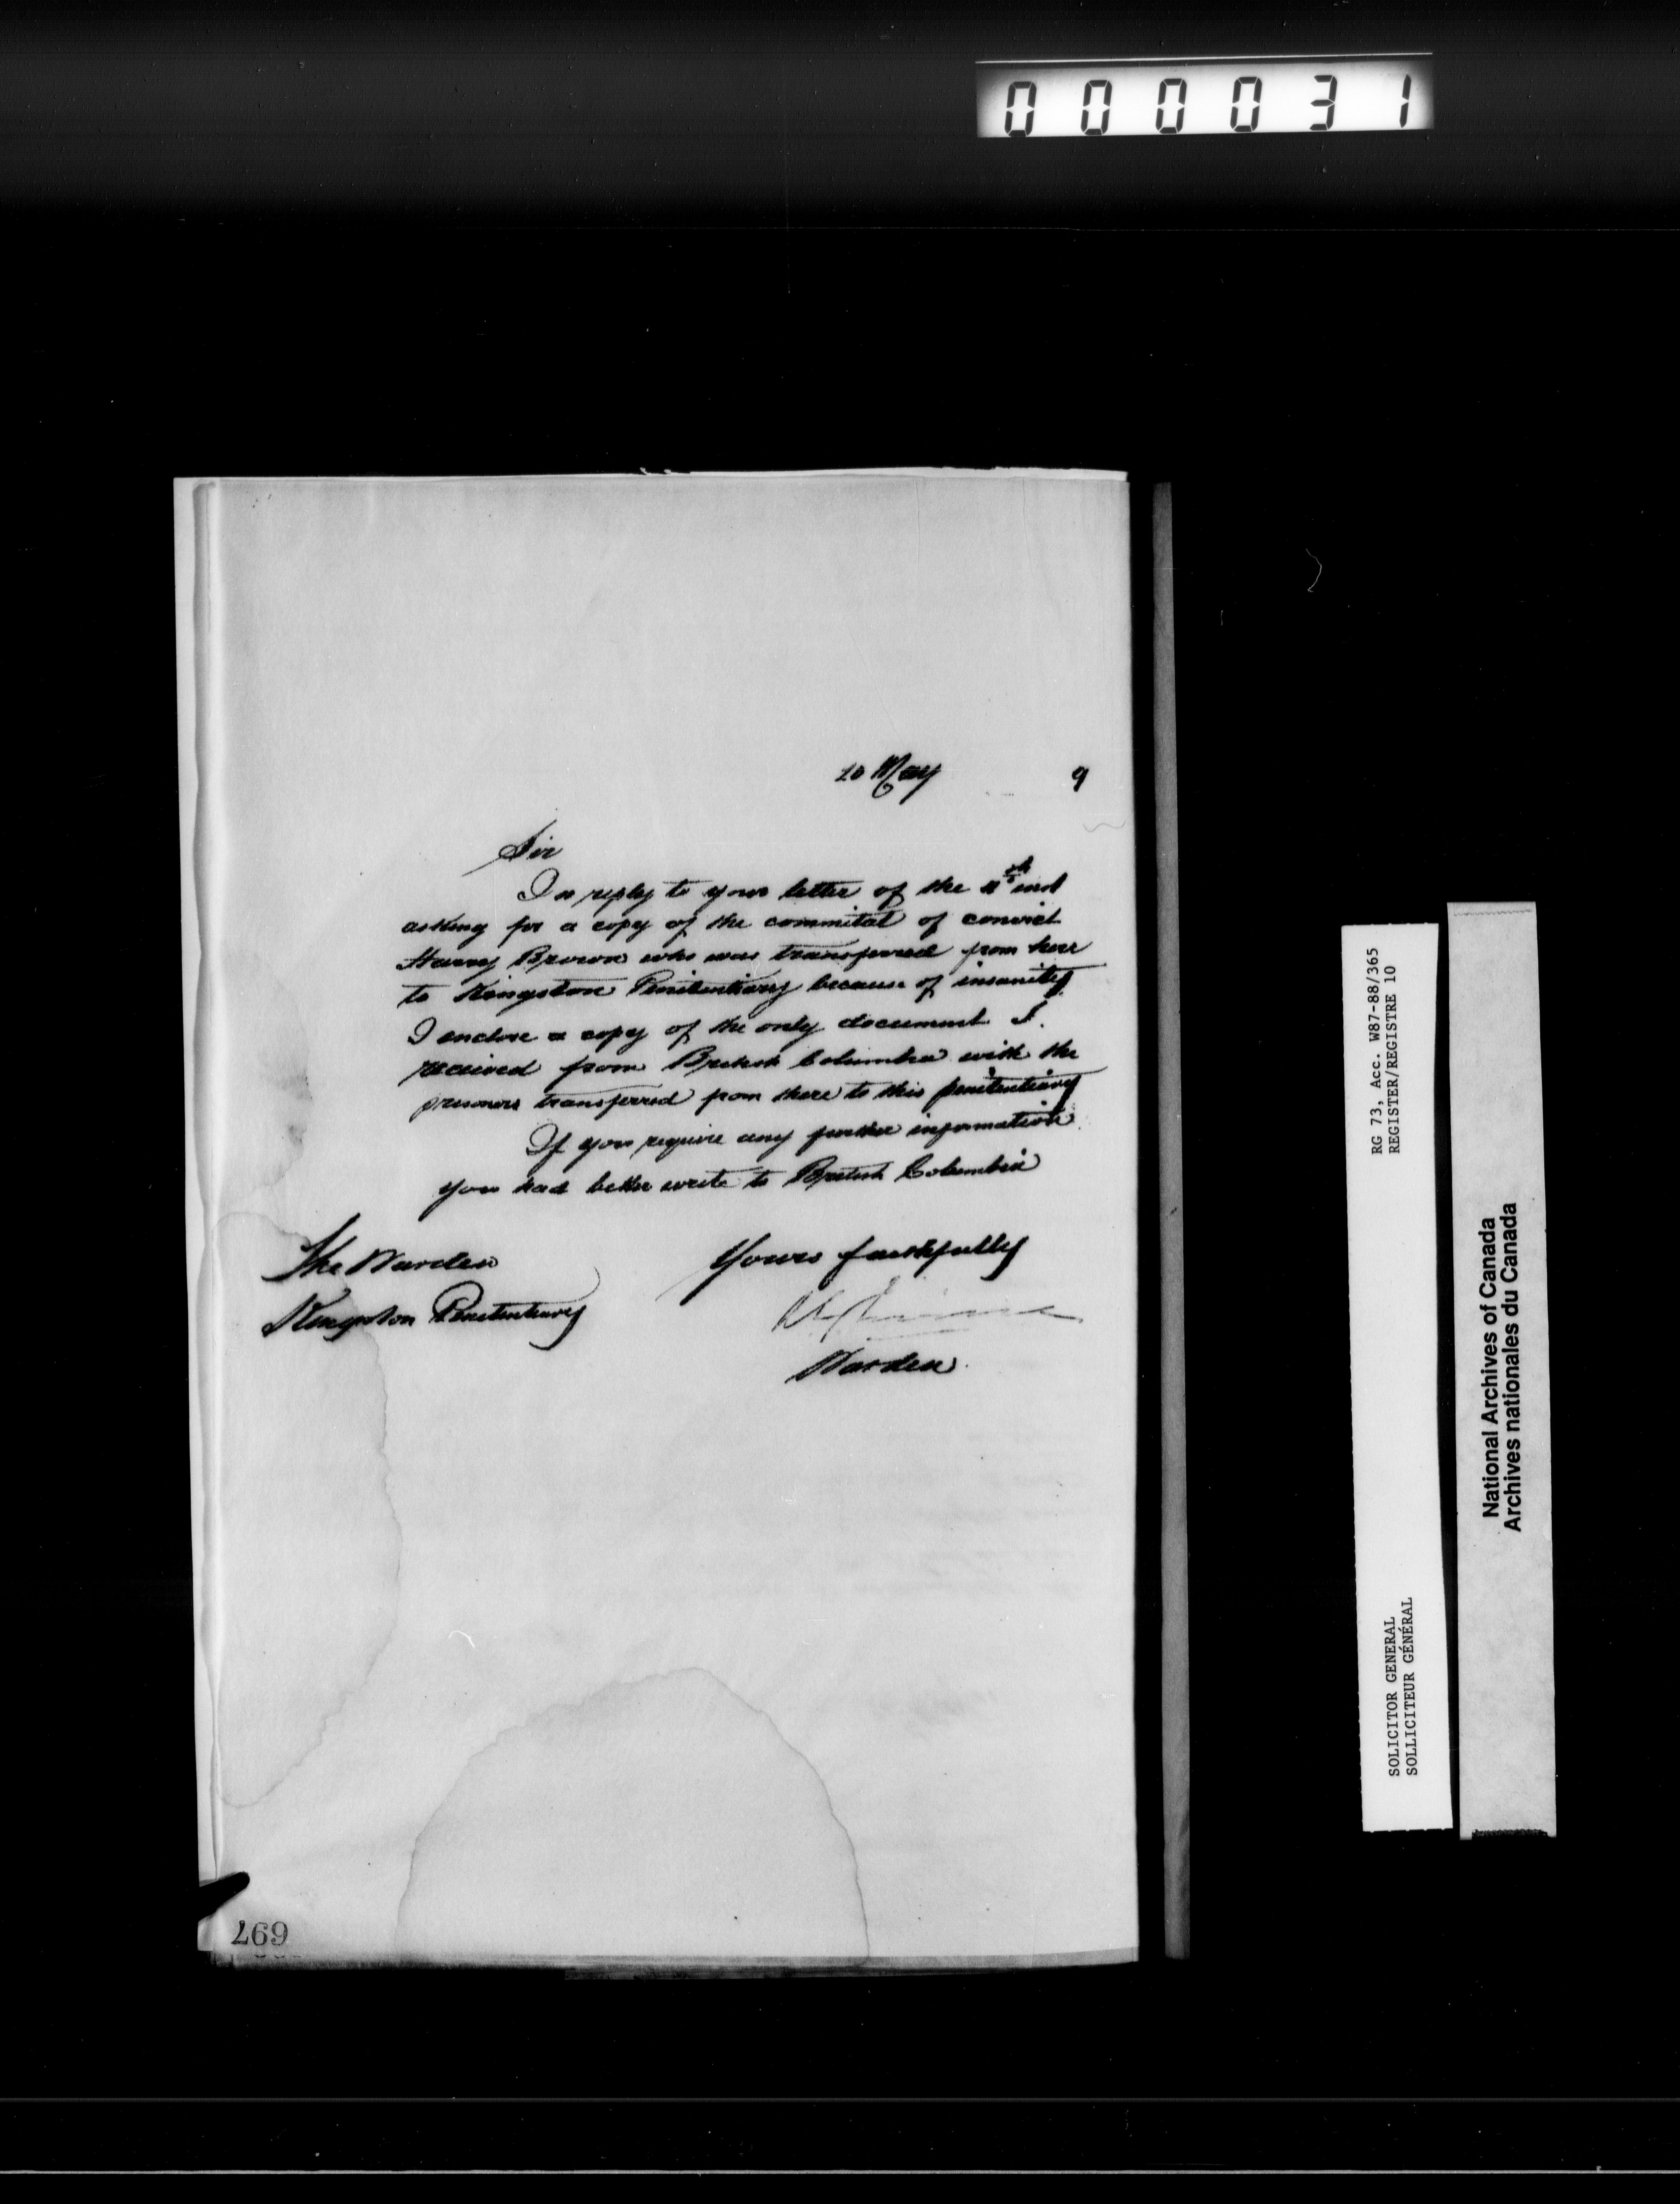 000031
20 May 9
Sir
In reply to your letter of the 11th inst
asking for a copy of the commital of convict
Harvey Brown who was transferred from here
to Kingston Penitentiary because of insanity
I enclose a copy of the only document I
received from British Columbia with the
prisoners transferred from there to this penitentiary
If you require any further information
you had better write to British Columbia
Yours faithfully
Warden
The Warden
Kingston Penitentiary
697
RG 73, Acc. W87-88/365
REGISTER/REGISTRE 10
SOLICITOR GENERAL
SOLLICITEUR GÉNÉRAL
National Archives of Canada
Archives nationales du Canada